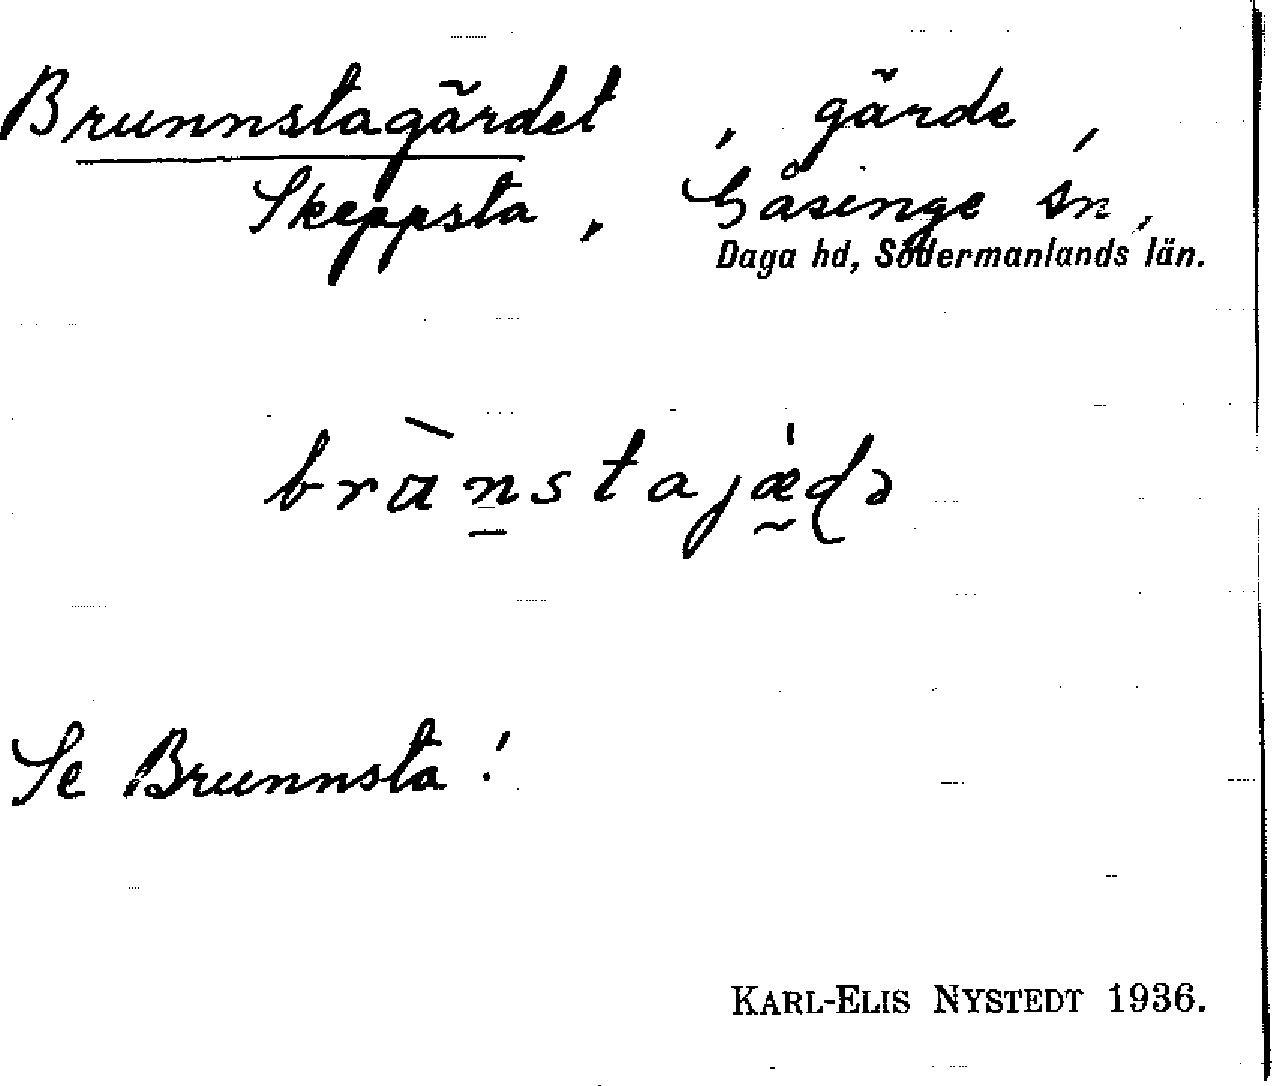 Brunnstagärdet, gärde,
Skeppsta, Gåsinge sn,
Daga hd, Södermanlands län.
Se Brunnsta!
KARL-ELIS NYSTEDT 1936.